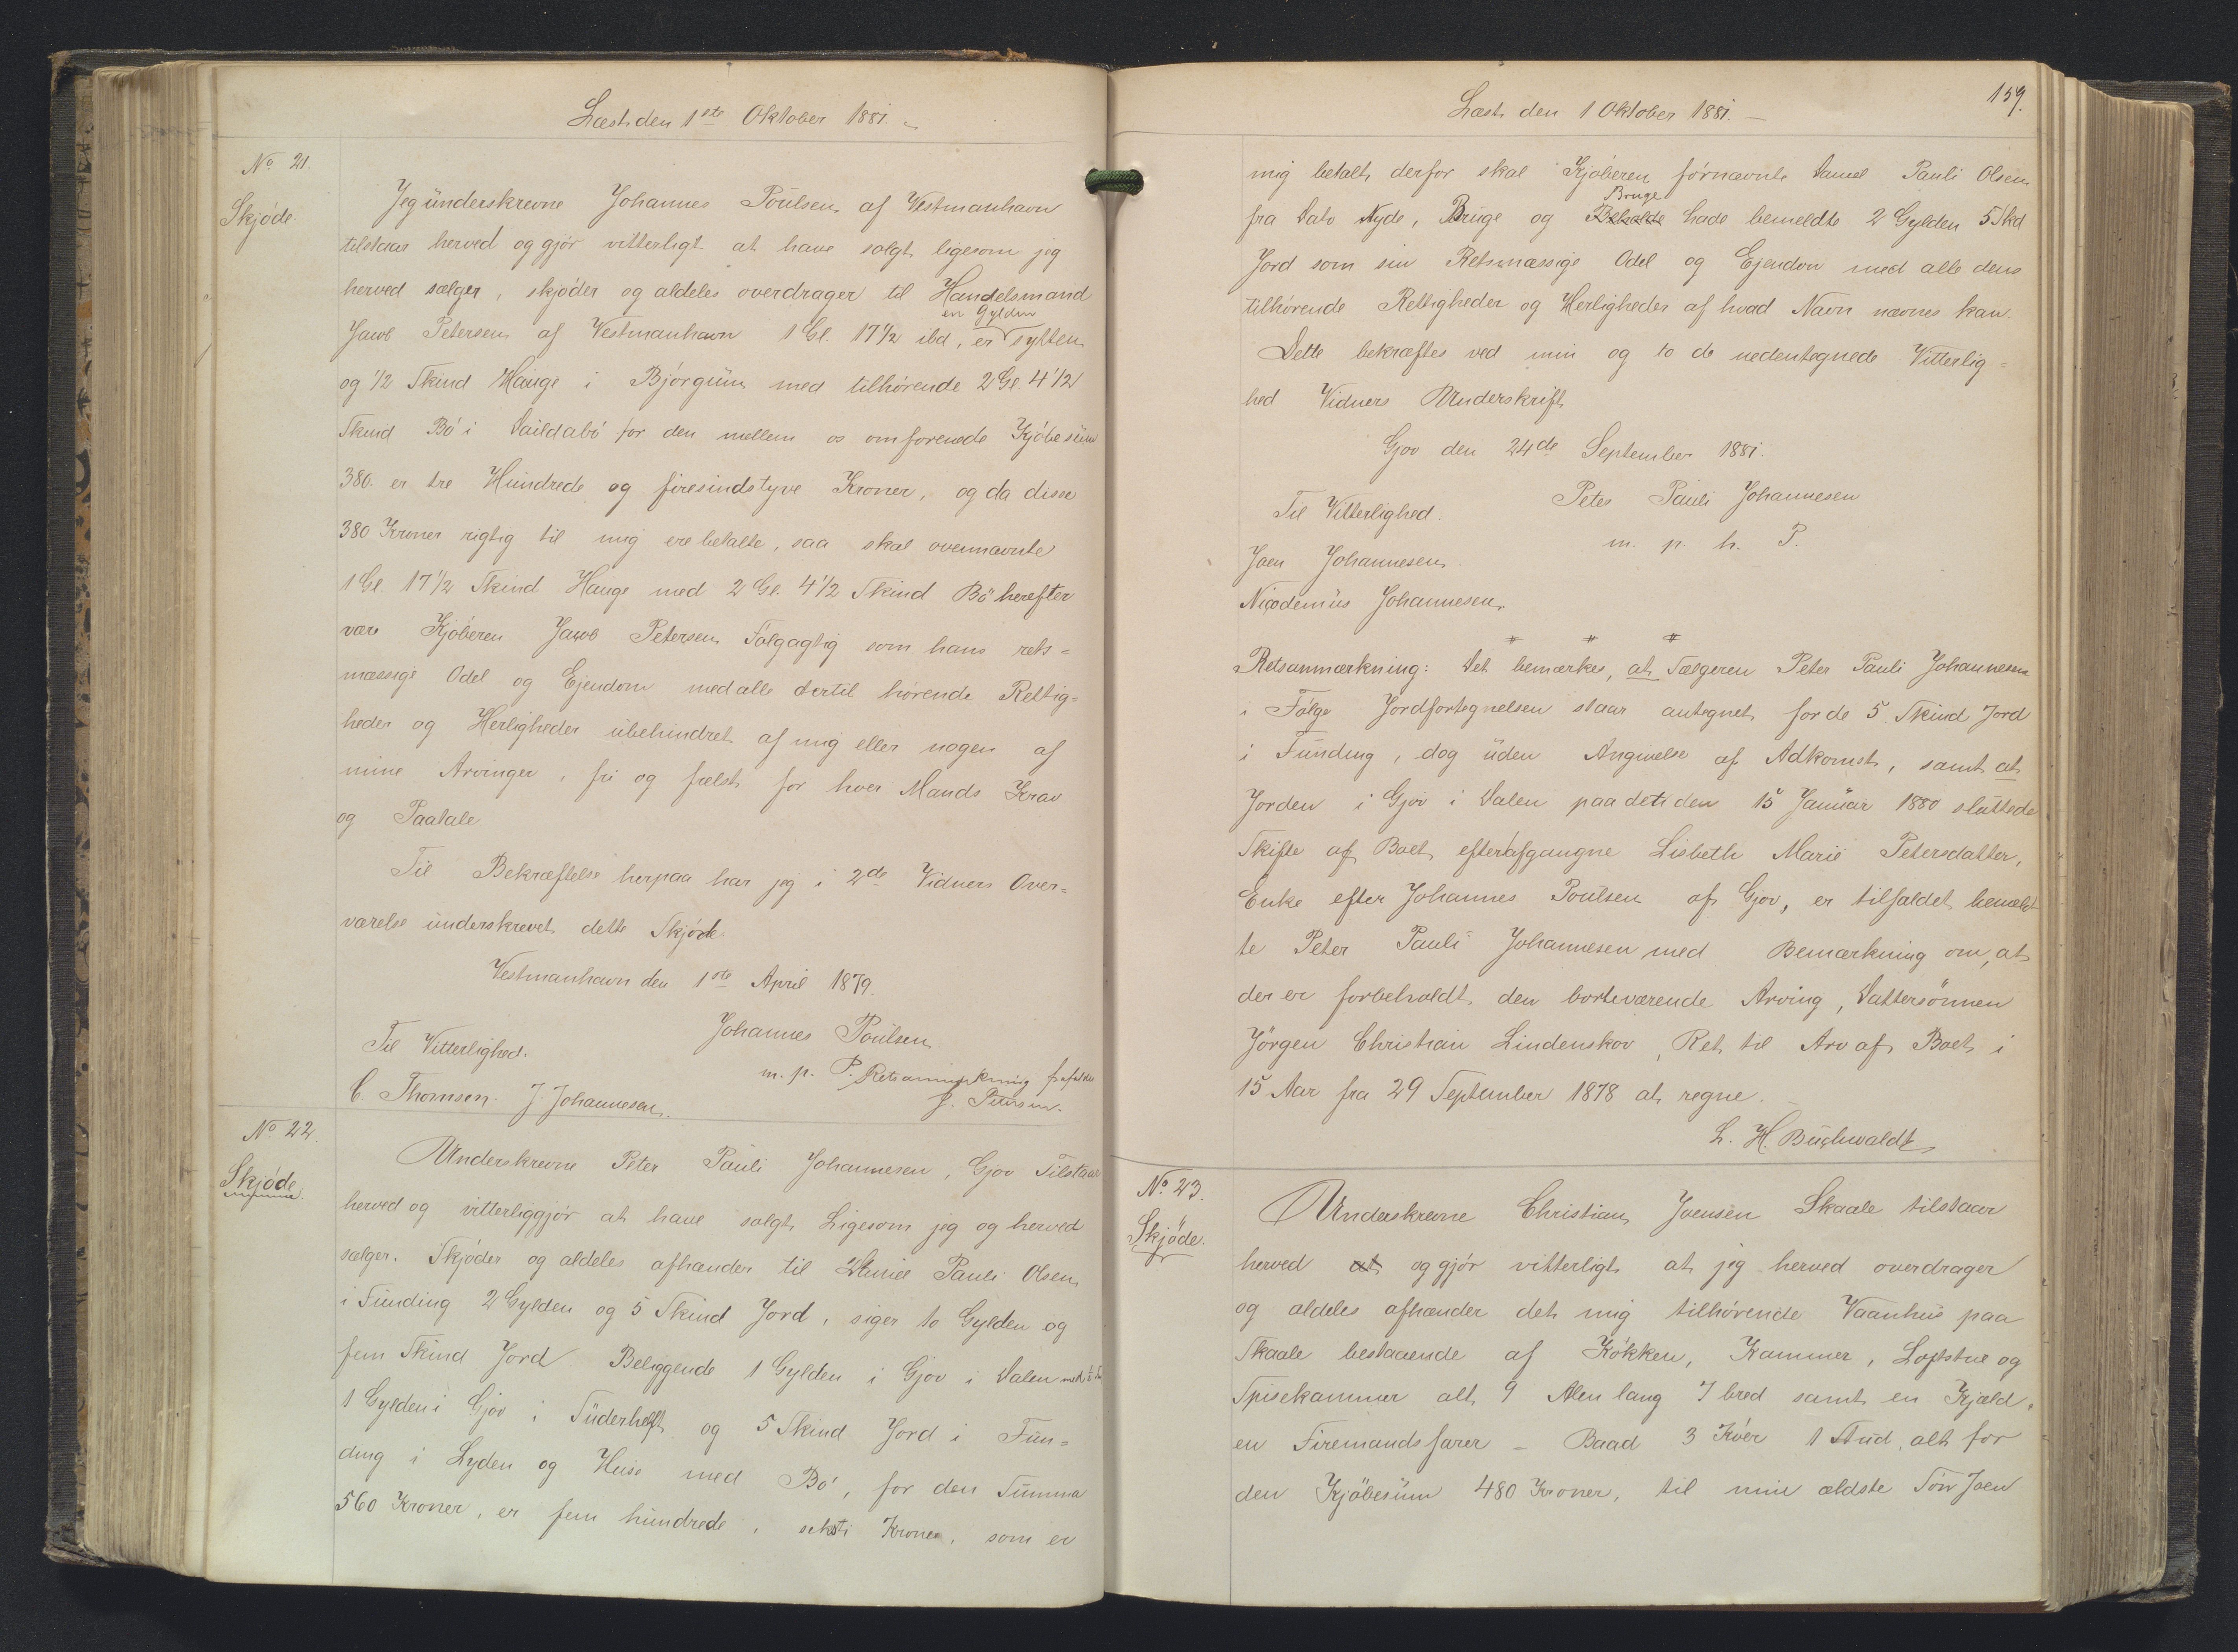 Læst den 1ste Oktober 1881.
No 21.
Skjöde.
Jeg underskrevne Johannes Poulsen af Vestmanhavn
tilstaar herved og gjör vitterligt at have solgt ligesom jeg
herved sælger, skjöder og aldeles overdrager til Handelsmand
en Gylden
Jacob Petersen af Vestmanhavn 1 Gl. 17½ ibd, er sytten
og ½ Skind Hauge i Bjórgum med tilhörende 2 Gl. 4½
Skind Bö i Saildabö for den mellem os omforenede Kjöbesum
380. er tre Hundrede og firesindstyve Kroner, og da disse
380 Kroner rigtig til mig ere betalte, saa skal ovennævnte
1 Gl. 17½ Skind Hauge med 2 Gl. 4½ Skind Bö herefter
være Kjöberen Jacob Petersen Fölgagtig som hans rets=
mæssige Odel og Ejendom med alle dertil hörende Rettig=
heder og Herligheder ubehindret af mig eller nogen af
mine Arvinger, fri og frelst for hver Mands Krav
og Paatale
Til Bekræftelse herpaa har jeg i 2de Vidners Over=
værelse underskrevet dette Skjöde.
Vestmanhavn den 1ste April 1879.
Johannes Poulsen
Til Vitterlighed.
m. p. P. Retsanmærkning frafaldes
C. Thomsen. J. Johannesen.
J. Petersen.
No 22.
Skjöde.
Underskrevne Peter Pauli Johannesen, Gjov Tilstaar
herved og vitterliggjör at have solgt Ligesom jeg og herved
sælger. Skjöder og aldeles afhænder til Daniel Pauli Olsen
i Funding 2 Gylden og 5 Skind Jord, siger to Gylden og
fem Skind Jord Beliggende 1 Gylden i Gjov i Dalen
1 Gylden i Gjov i Süderhelft og 5 Skind Jord i Fun=
ding i Lyden og Huse med Bö, for den Summa
560 Kroner, er fem hundrede, seksti Kroner, som er
Læst den 1 Oktober 1881.
159.
mig betalt derfor skal Kjöberen fórnævnte Daniel Pauli Olsen
Bruge
fra Dato Nyde, Bruge og Beholde hade bemeldte 2 Gylden 5 Skd
Jord som sin Retsmæssige Odel og Ejendom med alle dens
tilhörende Rettigheder og Herligheder af hvad Navn nævnes kan.
Dette bekræftes ved min og to de nedentegnede Vitterlig=
hed Vidners Underskrift
Gjov den 24de September 1881.
Peter Pauli Johannesen
Til Vitterlighed.
m. p. h. P.
Joen Johannesen.
Nicodemus Johannesen.
Retsanmærkning: Det bemærkes, at Sælgeren Peter Pauli Johannesen
i Fölge Jordfortegnelsen staar antegnet for de 5 Skind Jord
i Funding, dog uden Angivelse af Adkomst, samt at
Jorden i Gjov i Dalen paa det den 15 Januar 1880 sluttede
Skifte af Boet efter afgangne Lisbeth Marie Petersdatter,
Enke efter Johannes Poulsen af Gjov, er tilfaldet bemeld
te Peter Pauli Johannesen med Bemærkning om, at
der er forbeholdt den borteværende Arving, Dattersönnen
Jörgen Christian Lindenskov, Ret til Arv af Boet i
15 Aar fra 29 September 1878 at regne.
L. H. Buchwaldt
No 23.
Skjöde.
Underskrevne Christian Joensen Skaale tilstaar
herved at og gjör vitterligt at jeg herved overdrager
og aldeles afhænder det mig tilhörende Vaanhus paa
Skaale bestaaende af Kökken, Kammer, Loftstue og
Spisekammer alt 9 Alen lang 7 bred samt en Kjæld.
en Firemandsfarer - Baad 3 Köer 1 Stud, alt for
den Kjöbesum 480 Kroner, til min ældste Sön Joen